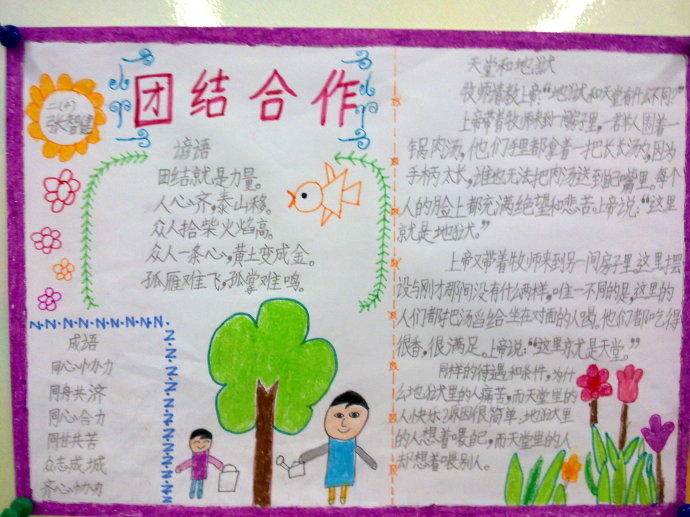 团结合作
二(4)
张智建
谚语
团结就是力量。
人心齐,泰山移。
众人拾柴火焰高。
众人一条心,黄土变成金。
孤雁难飞,孤掌难鸣。
成语
同心协力
同舟共济
同心合力
同甘共苦
众志成城
齐心协力
天堂和地狱
牧师请教上帝:“地狱和天堂有什么不同?”
上帝带着牧师来到一间房子里,一群人围着一
锅肉汤,他们手里都拿着一把长长汤勺,因为
手柄太长,谁也无法把肉汤送到自己嘴里。每个
人的脸上都充满绝望和悲苦。上帝说:“这里
就是地狱。”
上帝又带着牧师来到另一间房子里,这里摆
设与刚才那间没有什么两样,唯一不同的是,这里的
人们都把汤舀给坐在对面的人喝。他们都吃得
很香,很满足。上帝说:“这里就是天堂。”
同样的待遇和条件,为什
么地狱里的人痛苦,而天堂里的
人快乐?原因很简单:地狱里
的人想着喂自己,而天堂里的人
却想着喂别人。